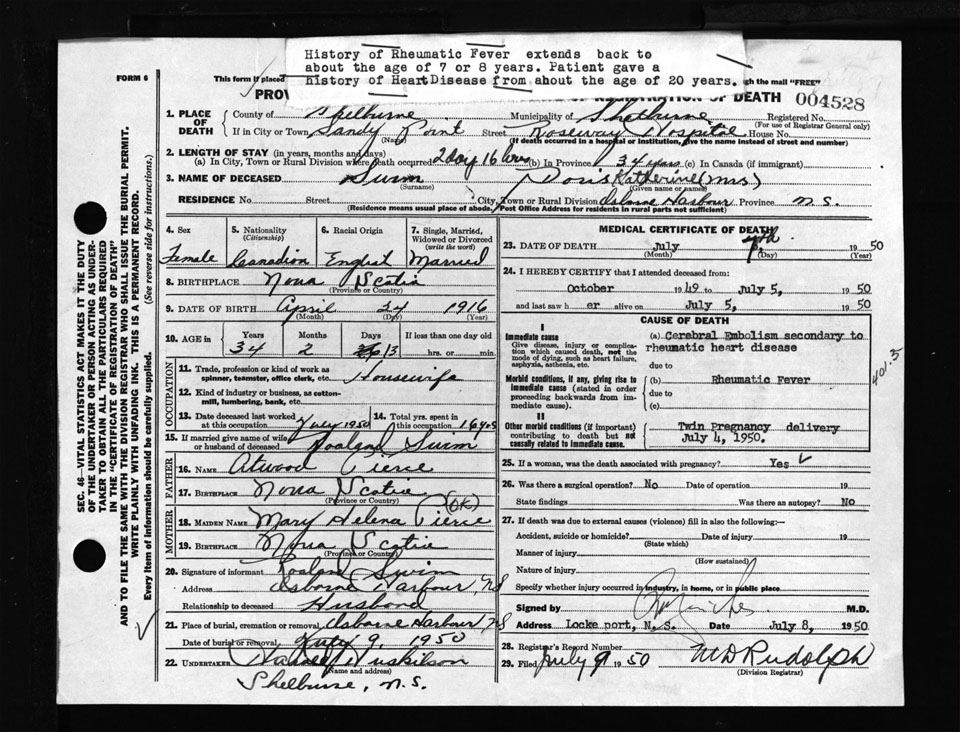 History of Rheumatic Fever extends back to
about the age of 7 or 8 years. Patient gave a
history of Heart Disease from about the age of 20 years.
FORM 6
This form if placed
gh the mail "FREE"
PROV
OF REGISTRATION OF DEATH
004528
1. PLACE OF DEATH
County of Shelburne Municipality of Shelburne Registered No.
(For use of Registrar General only)
If in City or Town Sandy Point Street Roseway Hospital House No.
(Name)
(If death occurred in a hospital or institution, give the name instead of street and number)
2. LENGTH OF STAY (in years, months and days)
(a) In City, Town or Rural Division where death occurred 2 day 16 hrs (b) In Province 34 years (c) In Canada (if immigrant)
3. NAME OF DECEASED Swim Doris Katherine (Mrs)
(Surname) (Given name or names)
RESIDENCE No. Street City, Town or Rural Division Osborne Harbour Province N.S.
(Residence means usual place of abode, Post Office Address for residents in rural parts not sufficient)
4. Sex
Female
5. Nationality
(Citizenship)
Canadian
6. Racial Origin
English
7. Single, Married,
Widowed or Divorced
(write the word)
Married
8. BIRTHPLACE Nova Scotia
(Province or Country)
9. DATE OF BIRTH April 24 1916
(Month) (Day) (Year)
10. AGE in Years Months Days If less than one day old
34 2 13 hrs. or min.
OCCUPATION
11. Trade, profession or kind of work as
spinner, teamster, office clerk, etc. Housewife
12. Kind of industry or business, as cotton-
mill, lumbering, bank, etc.
13. Date deceased last worked
at this occupation July 1950
14. Total yrs. spent in
this occupation 16 yrs
15. If married give name of wife
or husband of deceased Roaland Swim
FATHER
16. NAME Atwood Pierce
17. BIRTHPLACE Nova Scotia
(Province or Country)
MOTHER
18. MAIDEN NAME Mary Helena Pierce (OK)
19. BIRTHPLACE Nova Scotia
(Province or Country)
20. Signature of informant Roaland Swim
Address Osborne Harbour, NS
Relationship to deceased Husband
21. Place of burial, cremation or removal Osborne Harbour NS
Date of burial or removal July 9, 1950
22. UNDERTAKER Huskilson
(Name and address)
Shelburne, N.S.
MEDICAL CERTIFICATE OF DEATH
23. DATE OF DEATH July 7th 1950
(Month) (Day) (Year)
24. I HEREBY CERTIFY that I attended deceased from:
October 1949 to July 5, 1950
and last saw h er alive on July 5, 1950
CAUSE OF DEATH
I
Immediate cause
Give disease, injury or complica-
tion which caused death, not the
mode of dying, such as heart failure,
asphyxia, asthenia, etc.
(a) Cerebral Embolism secondary to
rheumatic heart disease
due to
Morbid conditions, if any, giving rise to
immediate cause (stated in order
proceeding backwards from im-
mediate cause).
(b) Rheumatic Fever
due to
(c)
401.3
II
Other morbid conditions (if important)
contributing to death but not
causally related to immediate cause.
Twin Pregnancy delivery
July 4, 1950.
25. If a woman, was the death associated with pregnancy? Yes ✓
26. Was there a surgical operation? No Date of operation 19
State findings Was there an autopsy? No
27. If death was due to external causes (violence) fill in also the following:—
Accident, suicide or homicide? Date of injury 19
(State which)
Manner of injury
(How sustained)
Nature of injury
Specify whether injury occurred in industry, in home, or in public place
Signed by M.D.
Address Locke port, N.S. Date July 8, 1950
28. Registrar's Record Number
29. Filed July 9 1950 MD Rudolph
(Division Registrar)
SEC. 46—VITAL STATISTICS ACT MAKES IT THE DUTY
OF THE UNDERTAKER OR PERSON ACTING AS UNDER-
TAKER TO OBTAIN ALL THE PARTICULARS REQUIRED
IN THE "CERTIFICATE OF REGISTRATION OF DEATH"
AND TO FILE THE SAME WITH THE DIVISION REGISTRAR WHO SHALL ISSUE THE BURIAL PERMIT.
WRITE PLAINLY WITH UNFADING INK. THIS IS A PERMANENT RECORD.
Every item of information should be carefully supplied. (See reverse side for instructions.)